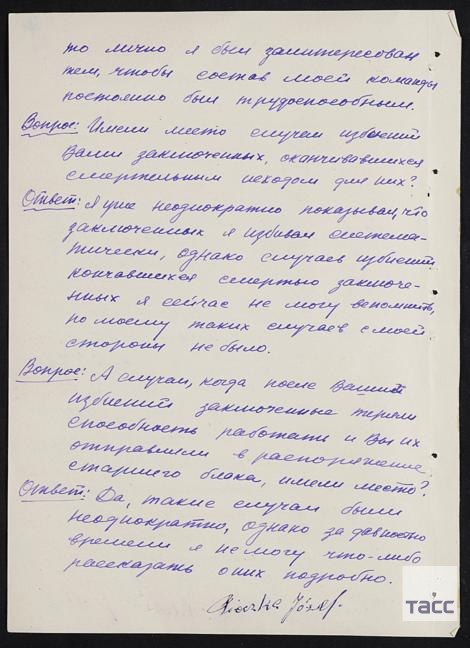 то лично я был заинтересован
тем, чтобы состав моей команды
постоянно был трудоспособным.
Вопрос: Имели место случаи избиений
Вами заключенных, оканчивавшихся
смертельным исходом для них?
Ответ: Я уже неоднократно показывал, что
заключенных я избивал система-
тически, однако случаев избиений
кончавшихся смертью заключе-
нных я сейчас не могу вспомнить,
по моему таких случаев с моей
стороны не было.
Вопрос: А случаи, когда после Ваших
избиений заключенные теряли
способность работать и Вы их
отправляли в распоряжение
старшего блока, имели место?
Ответ: Да, такие случаи были
неоднократно, однако за давностью
времени я не могу что-либо
рассказать о них подробно.
Józef.
ТАСС